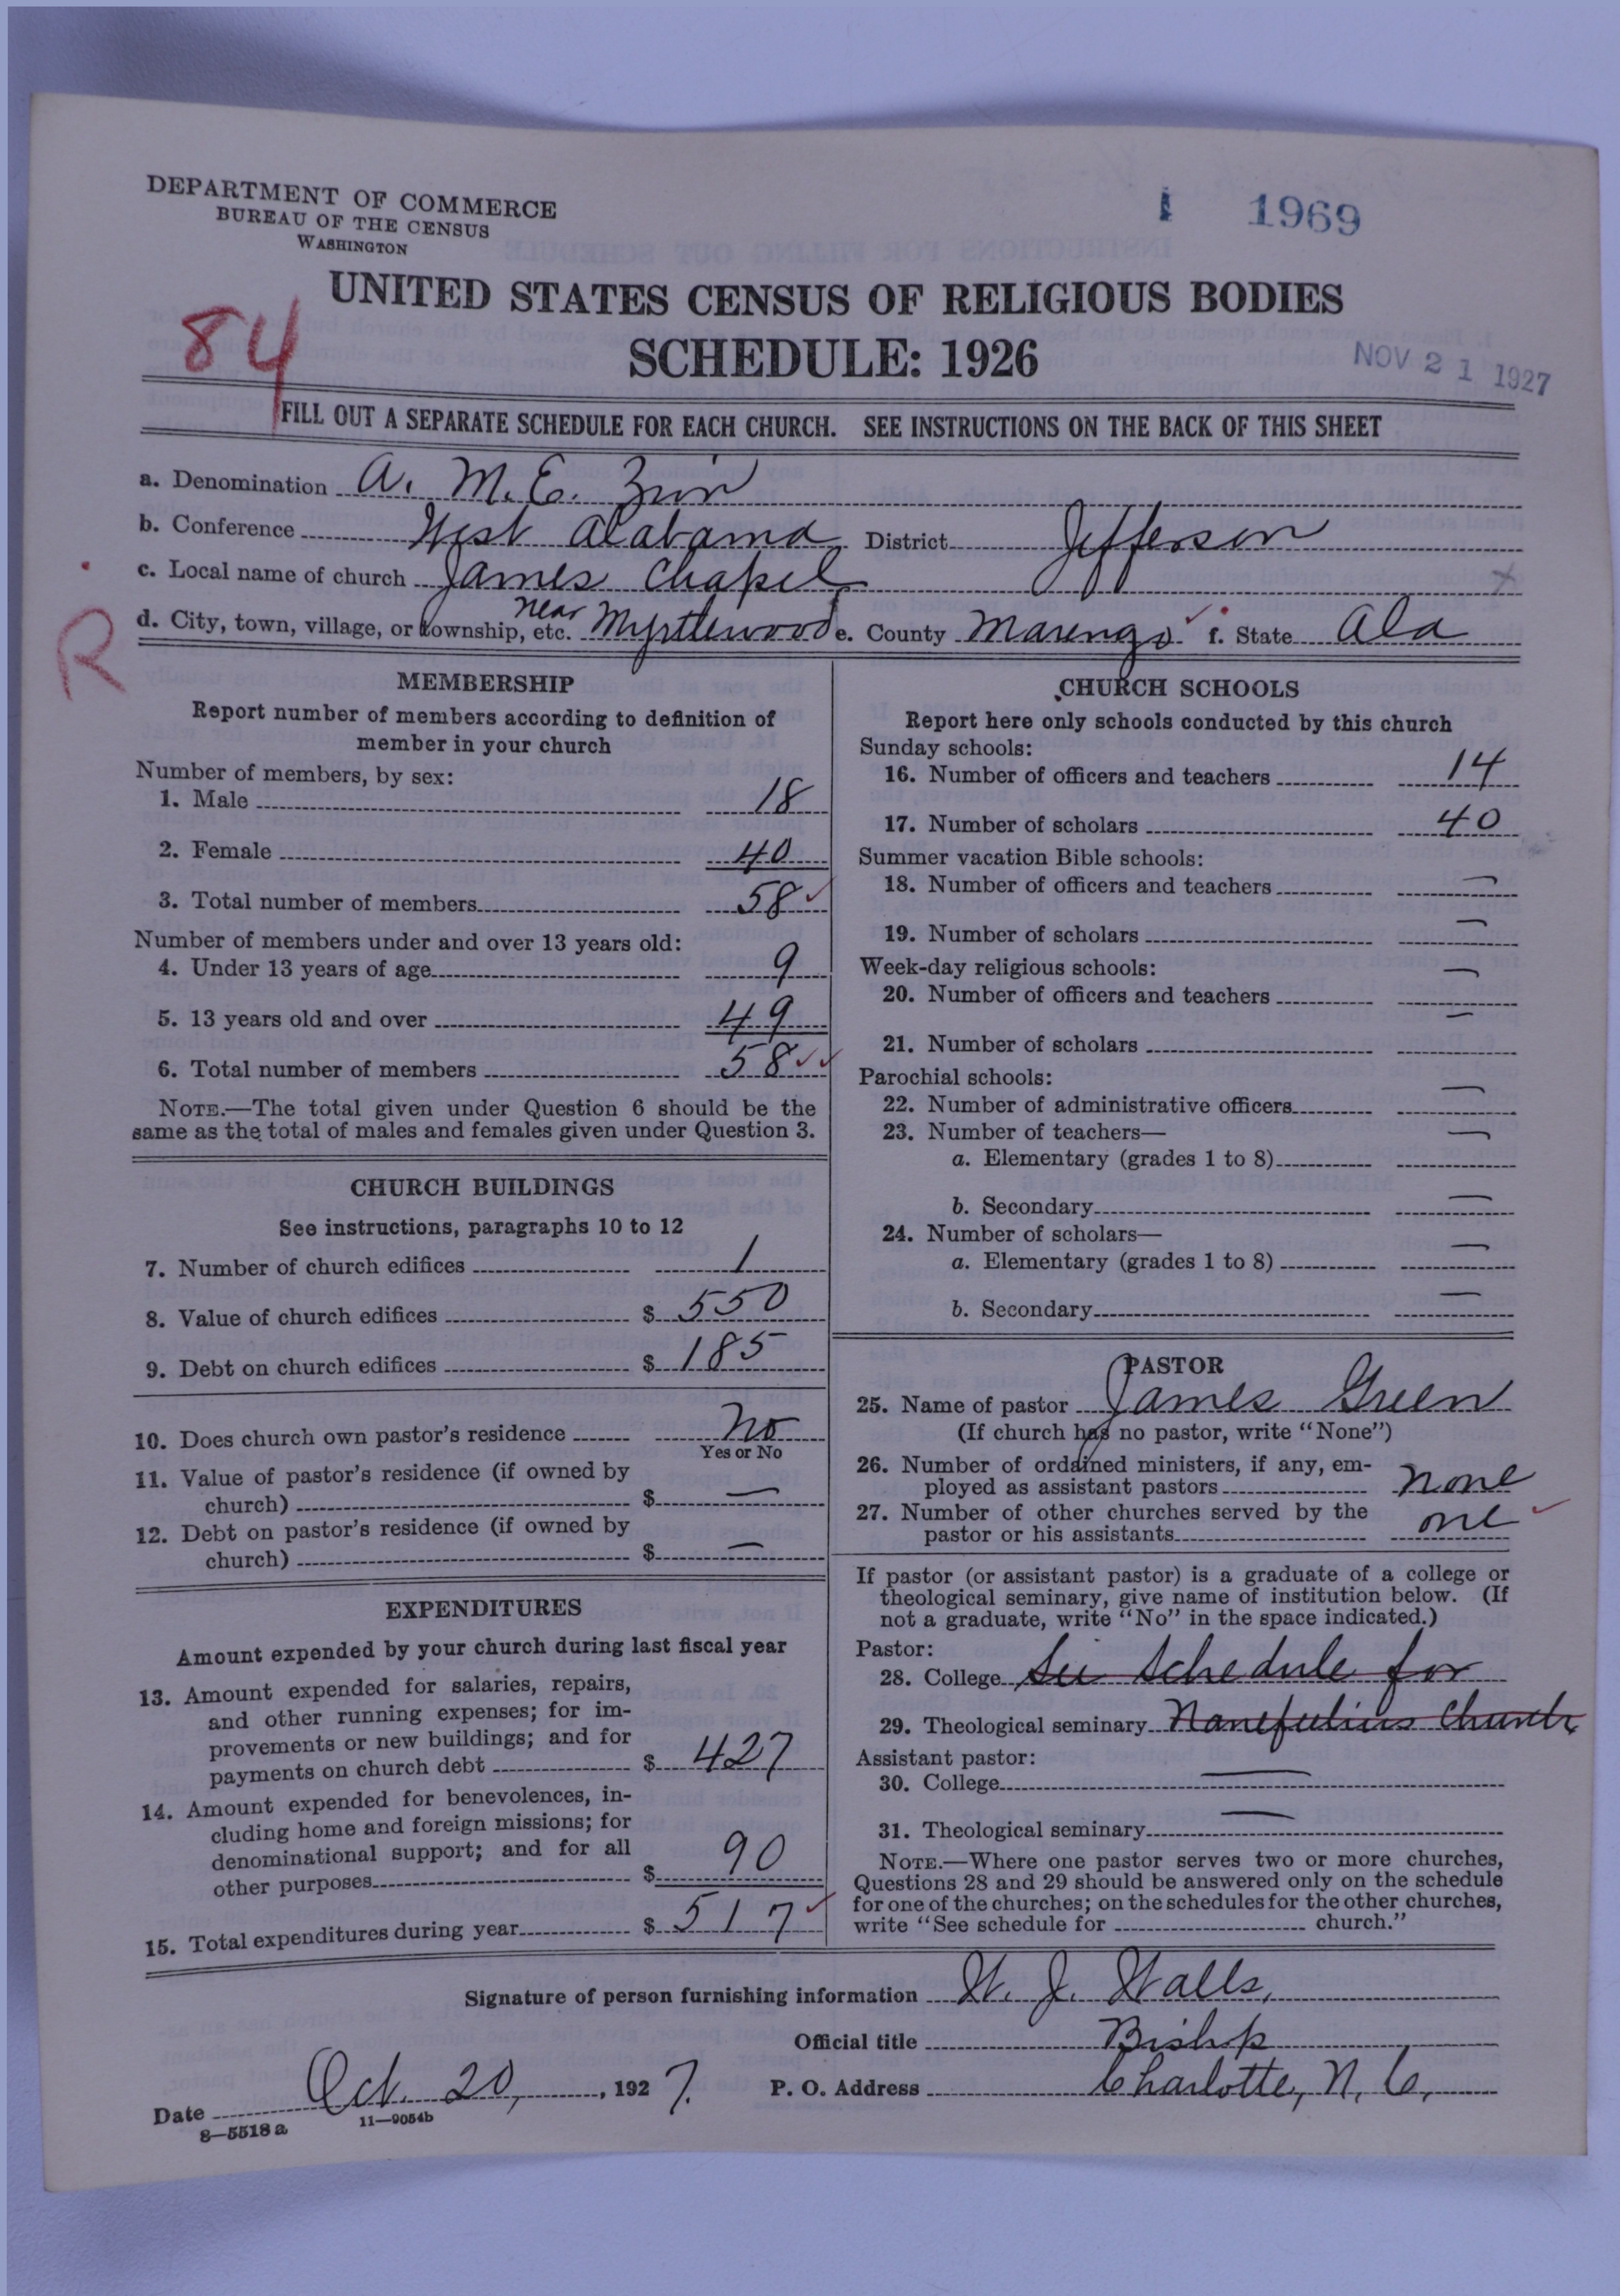 DEPARTMENT OF COMMERCE
BUREAU OF THE CENSUS
WASHINGTON
1 1969
UNITED STATES CENSUS OF RELIGIOUS BODIES
84
SCHEDULE: 1926
NOV 21 1927
FILL OUT A SEPARATE SCHEDULE FOR EACH CHURCH. SEE INSTRUCTIONS ON THE BACK OF THIS SHEET
a. Denomination A. M. E. Zion
b. Conference West Alabama District Jefferson
c. Local name of church James Chapel
d. City, town, village, or township, etc. near Myrtlewood e. County Marengo f. State Ala
R
MEMBERSHIP
Report number of members according to definition of
member in your church
Number of members, by sex:
1. Male 18
2. Female 40
3. Total number of members 58
Number of members under and over 13 years old:
4. Under 13 years of age 9
5. 13 years old and over 49
6. Total number of members 58
NOTE.—The total given under Question 6 should be the
same as the total of males and females given under Question 3.
CHURCH BUILDINGS
See instructions, paragraphs 10 to 12
7. Number of church edifices 1
8. Value of church edifices $ 550
9. Debt on church edifices $ 185
10. Does church own pastor's residence No
Yes or No
11. Value of pastor's residence (if owned by
church) $ —
12. Debt on pastor's residence (if owned by
church) $ —
EXPENDITURES
Amount expended by your church during last fiscal year
13. Amount expended for salaries, repairs,
and other running expenses; for im-
provements or new buildings; and for
payments on church debt $ 427
14. Amount expended for benevolences, in-
cluding home and foreign missions; for
denominational support; and for all
other purposes $ 90
15. Total expenditures during year $ 517
CHURCH SCHOOLS
Report here only schools conducted by this church
Sunday schools:
16. Number of officers and teachers 14
17. Number of scholars 40
Summer vacation Bible schools:
18. Number of officers and teachers —
19. Number of scholars —
Week-day religious schools:
20. Number of officers and teachers —
21. Number of scholars —
Parochial schools:
22. Number of administrative officers —
23. Number of teachers—
a. Elementary (grades 1 to 8) —
b. Secondary —
24. Number of scholars—
a. Elementary (grades 1 to 8) —
b. Secondary —
PASTOR
25. Name of pastor James Green
(If church has no pastor, write "None")
26. Number of ordained ministers, if any, em-
ployed as assistant pastors none
27. Number of other churches served by the
pastor or his assistants one
If pastor (or assistant pastor) is a graduate of a college or
theological seminary, give name of institution below. (If
not a graduate, write "No" in the space indicated.)
Pastor:
28. College See Schedule for
29. Theological seminary Church
Assistant pastor:
30. College —
31. Theological seminary —
NOTE.—Where one pastor serves two or more churches,
Questions 28 and 29 should be answered only on the schedule
for one of the churches; on the schedules for the other churches,
write "See schedule for church."
Signature of person furnishing information W. J. Walls,
Official title Bishop
Date Oct. 20, 1927. P. O. Address Charlotte, N. C.
8—5518 a 11—9054b